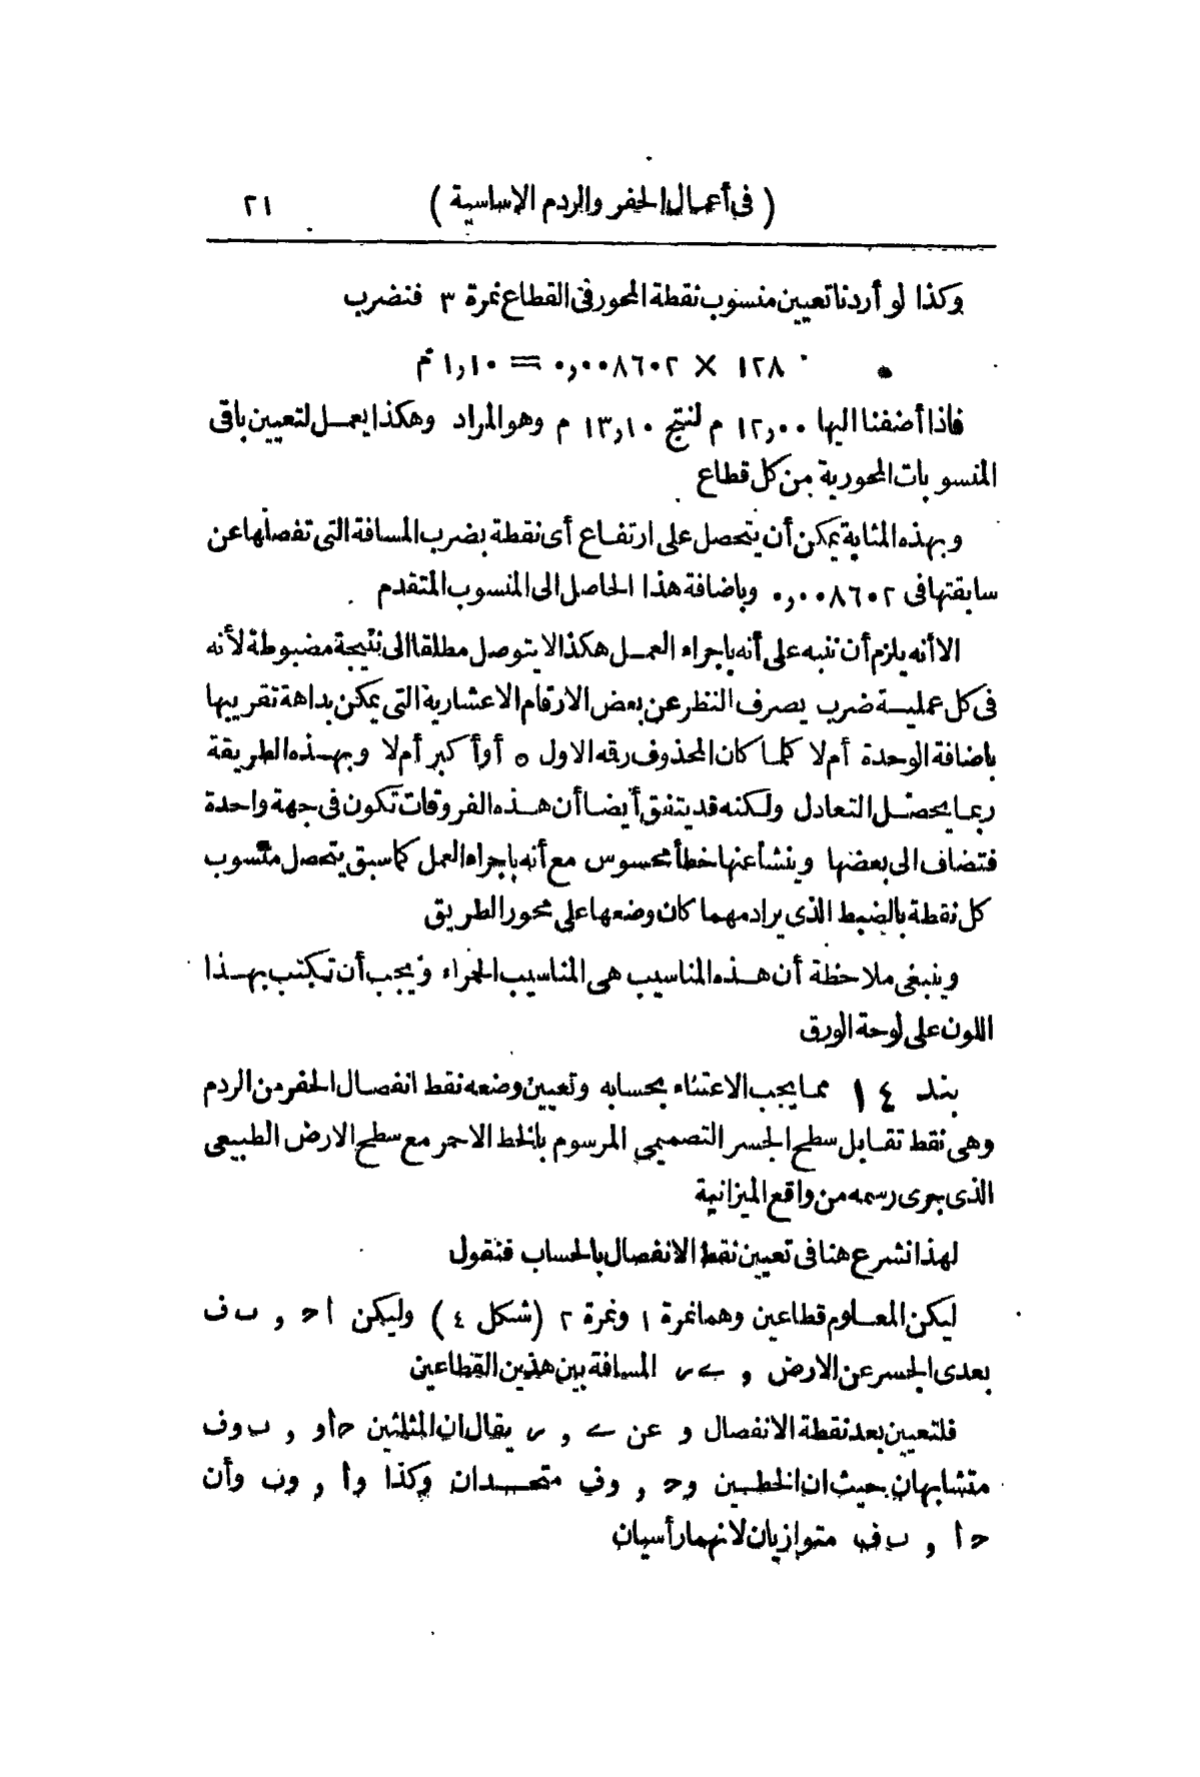 (فى أعمال الحفر والردم الاساسية) ٢١
وكذا لو أردنا تعيين منسوب نقطة المحور فى القطاع نمرة ٣ فنضرب
١٢٨ × ٠,٠٠٨٦٠٢ = ١,١٠ م
فاذا أضفنا اليها ١٢,٠٠ م لنتج ١٣,١٠ م وهو المراد وهكذا يعمل لتعيين باقى
المنسوبات المحورية من كل قطاع
وبهذه المثابة يمكن أن يتحصل على ارتفاع أى نقطة بضرب المسافة التى تفصلها عن
سابقتها فى ٠,٠٠٨٦٠٢ وباضافة هذا الحاصل الى المنسوب المتقدم
الا أنه يلزم أن ننبه على أنه باجراء العمل هكذا لا يتوصل مطلقا الى نتيجة مضبوطة لأنه
فى كل عملية ضرب يصرف النظر عن بعض الارقام الاعشارية التى يمكن بداهة تقريبها
باضافة الوحدة أم لا كلما كان المحذوف رقمه الاول ٥ أو أكبر أم لا وبهذه الطريقة
ربما يحصل التعادل ولكنه قد يتفق أيضا أن هذه الفروقات تكون فى جهة واحدة
فتضاف الى بعضها وينشأ عنها خطأ محسوس مع أنه باجراء العمل كما سبق يتحصل منسوب
كل نقطة بالضبط الذى يراد مهما كان وضعها على محور الطريق
وينبغى ملاحظة أن هذه المناسيب هى المناسيب الحمراء ويجب أن تكتب بهذا
اللون على لوحة الورق
بند ١٤ مما يجب الاعتناء بحسابه وتعيين وضعه نقط انفصال الحفر من الردم
وهى نقط تقابل سطح الجسر التصميمى المرسوم بالخط الاحمر مع سطح الارض الطبيعى
الذى جرى رسمه من واقع الميزانية
لهذا نشرع هنا فى تعيين نقط الانفصال بالحساب فنقول
ليكن المعلوم قطاعين وهما نمرة ١ ونمرة ٢ (شكل ٤) وليكن ا ح , ب ف
بعدى الجسر عن الارض , ے س المسافة بين هذين القطاعين
فلتعيين بعد نقطة الانفصال و عن ے , س يقال ان المثلثين ح أ و , ب و ف
متشابهان حيث ان الخطين و ح , و ف متحدان وكذا و أ , و ب وأن
ح أ , ب ف متوازيان لانهما رأسيان